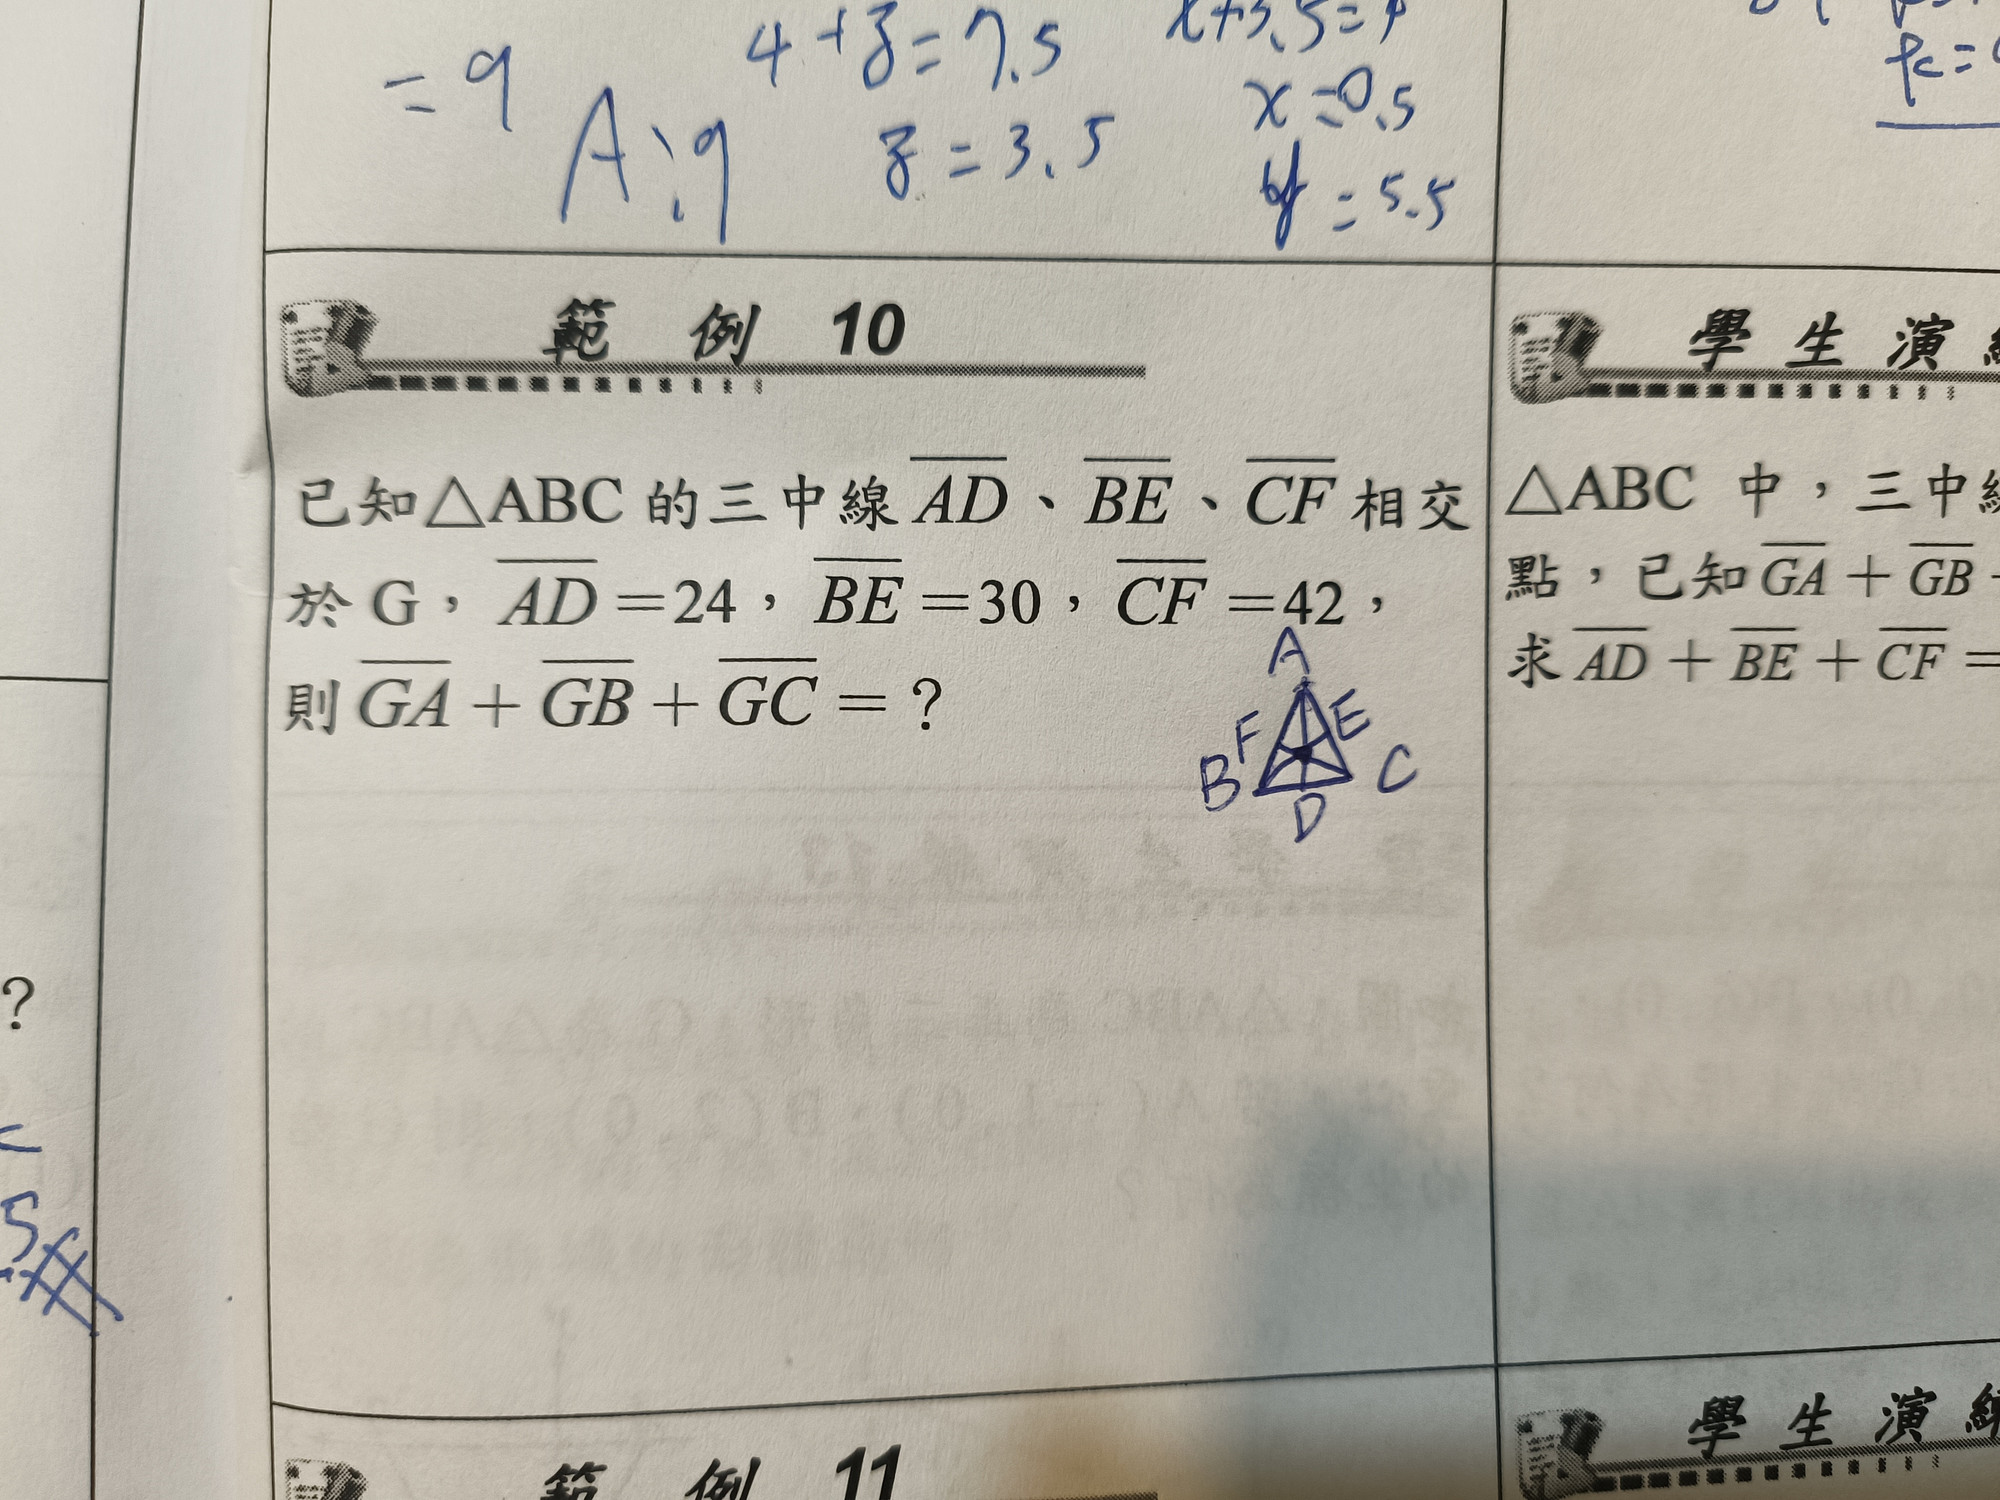 = 9
A:9
4+z=7.5
z=3.5
x=0.5
y=5.5
範例 10
已知△ABC 的三中線 AD、BE、CF 相交
於 G，AD=24，BE=30，CF=42，
則 GA+GB+GC=？
A
F E
B C
D
學生演
△ABC 中，三中線
點，已知 GA+GB
求 AD+BE+CF=
?
5
範例 11
學生演